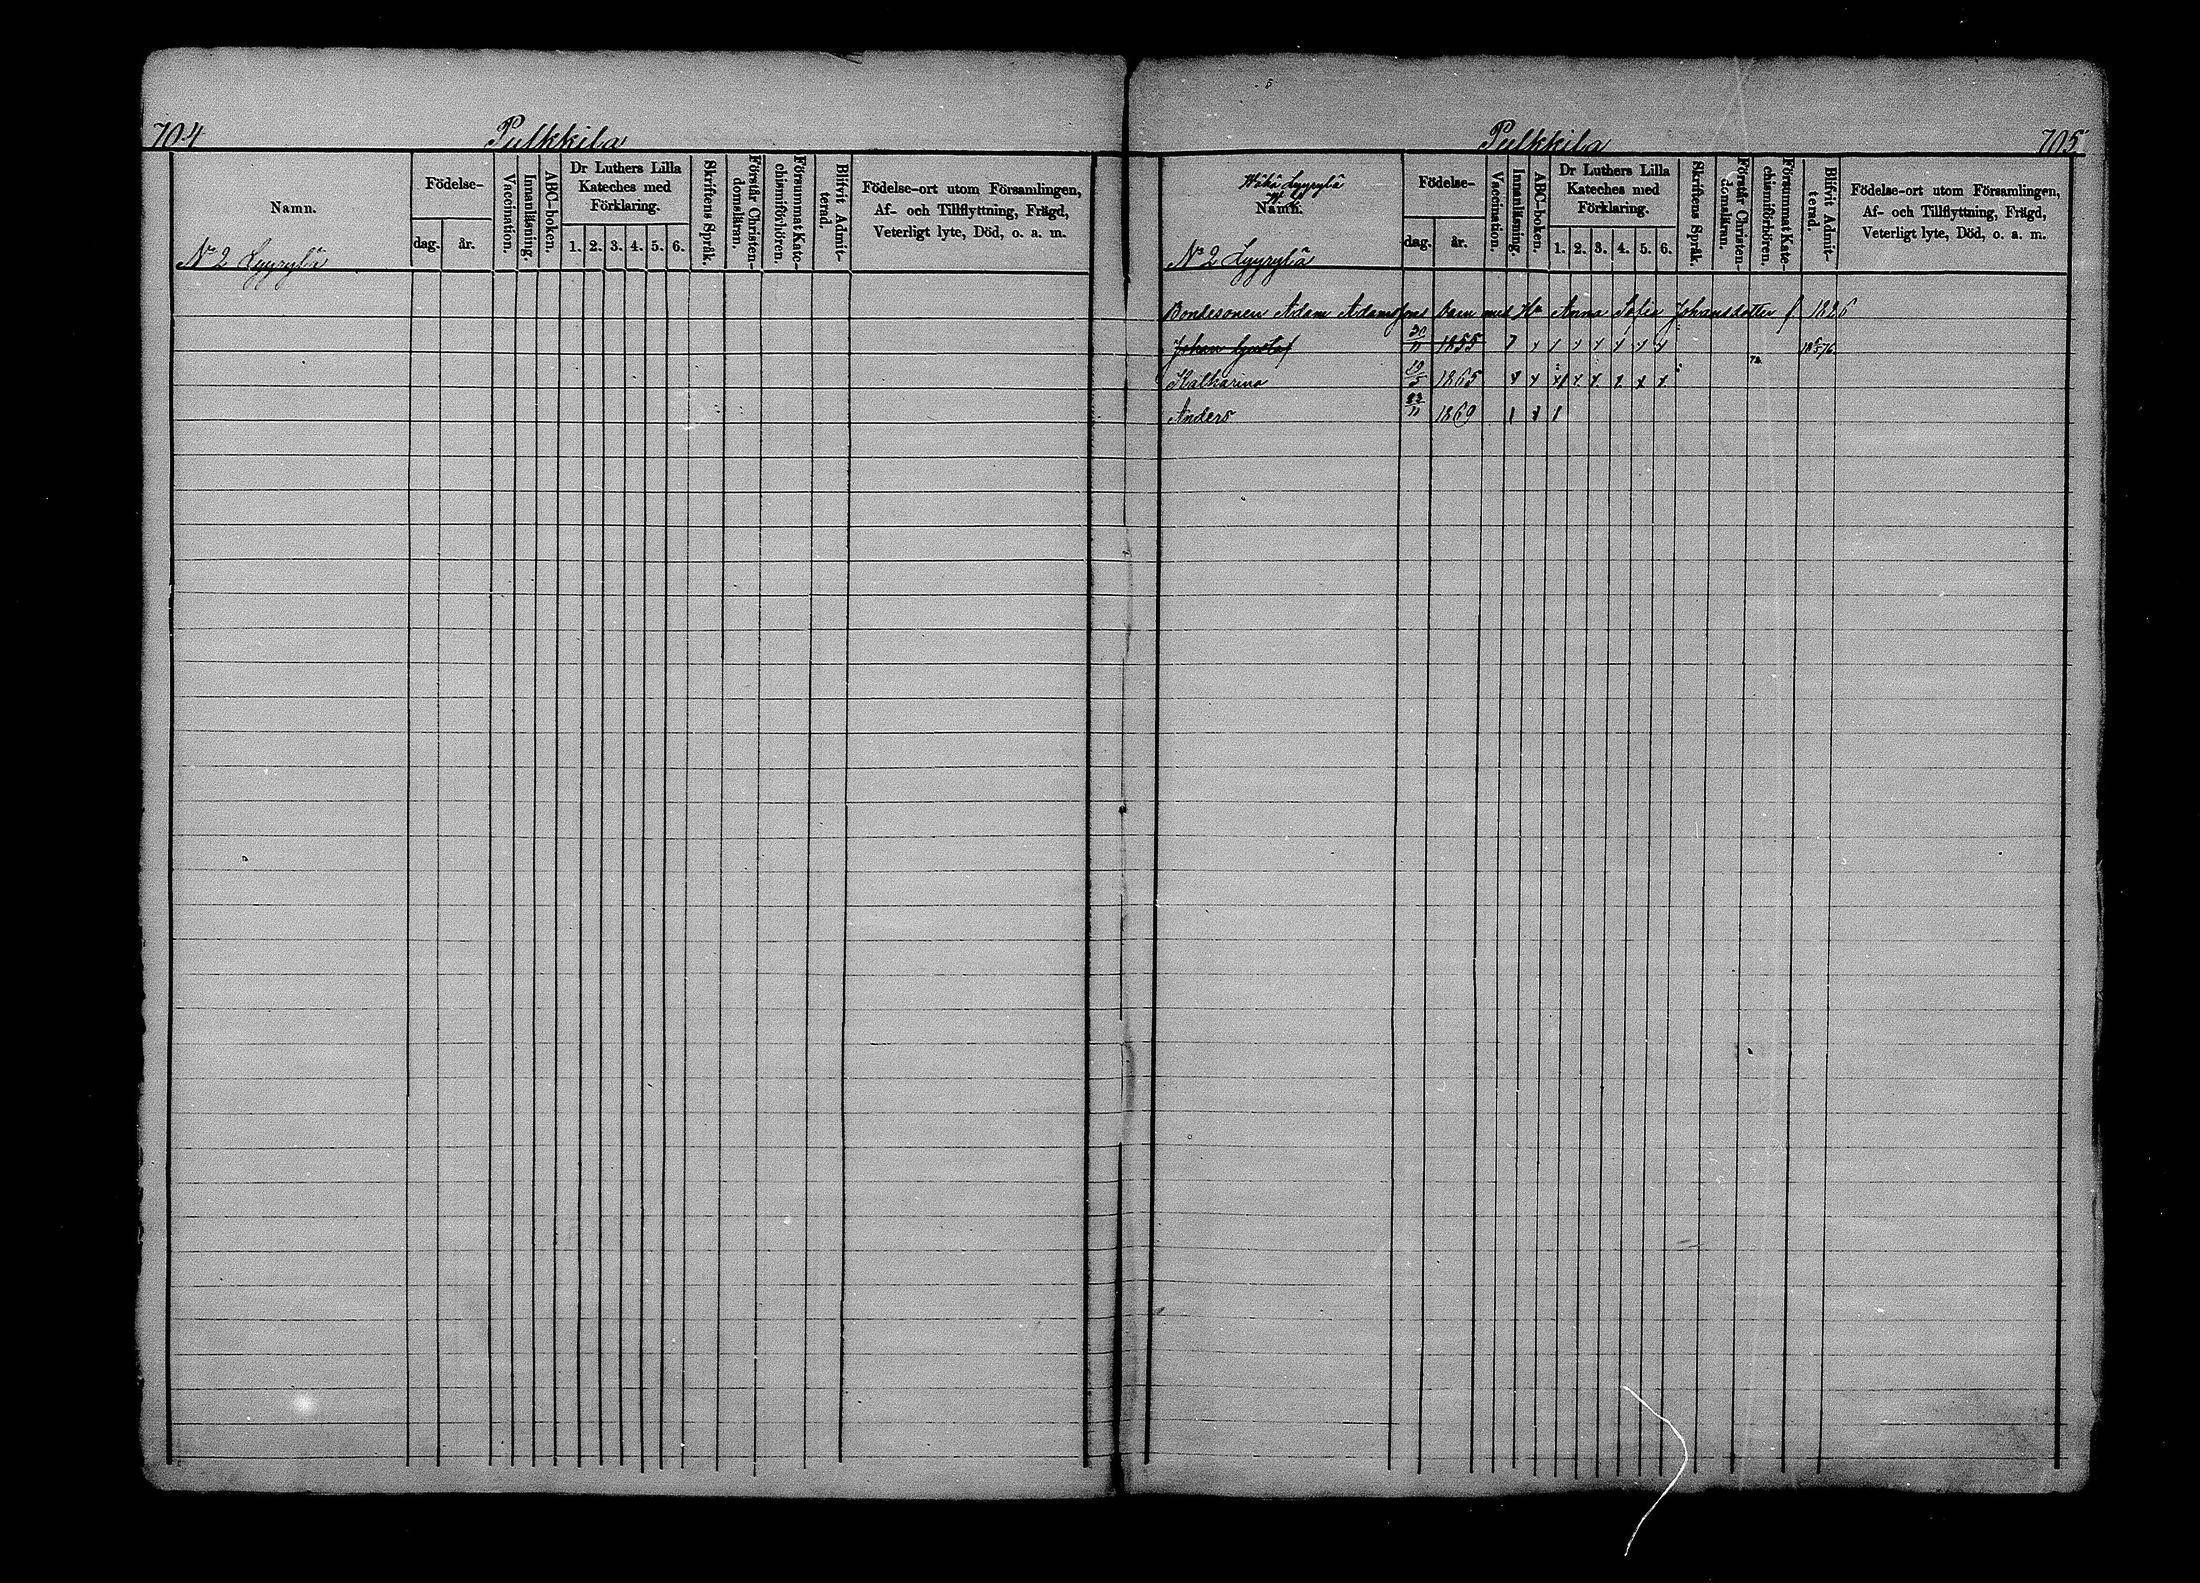 704 Pulkkila
Namn.
Födelse-
dag. år.
Vaccination.
Innanläsning.
ABC-boken.
Dr Luthers Lilla Kateches med Förklaring.
1. 2. 3. 4. 5. 6.
Skriftens Språk.
Förstår Christendomsläran.
Försummat Katechismiförhören.
Blifvit Admitterad.
Födelse-ort utom Församlingen,
Af- och Tillflyttning, Frägd,
Veterligt lyte, Död, o. a. m.
No 2 Lyyrylä
Pulkkila 705
Lyyrylä
Namn.
Födelse-
dag. år.
Vaccination.
Innanläsning.
ABC-boken.
Dr Luthers Lilla Kateches med Förklaring.
1. 2. 3. 4. 5. 6.
Skriftens Språk.
Förstår Christendomsläran.
Försummat Katechismiförhören.
Blifvit Admitterad.
Födelse-ort utom Församlingen,
Af- och Tillflyttning, Frägd,
Veterligt lyte, Död, o. a. m.
No 2 Lyyrylä
Bondesonen Adam Adamssons barn med Hu Anna Sofia Johansdotter f 1826
Johan Gustaf 30/11 1855
Katharina 19/5 1865
Anders 22/11 1869